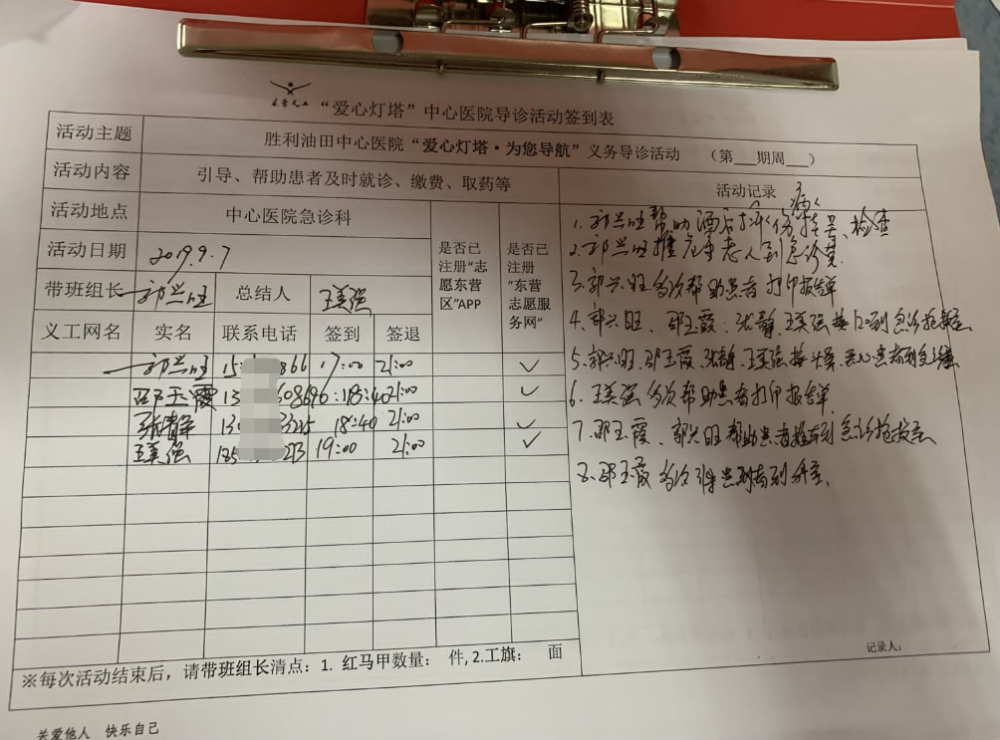 “爱心灯塔”中心医院导诊活动签到表
活动主题 胜利油田中心医院“爱心灯塔·为您导航”义务导诊活动 (第___期周___)
活动内容 引导、帮助患者及时就诊、缴费、取药等 活动记录
活动地点 中心医院急诊科 是否已注册“志愿东营区”APP 是否已注册“东营志愿服务网”
活动日期 2019.9.7
带班组长 郭兴旺 总结人 王美强
义工网名 实名 联系电话 签到 签退
郭兴旺 15 866 17:00 21:00 ✓
邵玉霞 13 18:40 21:00 ✓
张静 13 18:40 21:00 ✓
王美强 185 213 19:00 21:00 ✓
1. 郭兴旺帮助酒后 检查
2. 郭兴旺推 老人到急诊室.
3. 郭兴旺多次帮助患者打印报告单
4. 郭兴旺、邵玉霞、张静、王美强 到急诊抢救室
5. 郭兴旺、邵玉霞、张静、王美强 患者到
6. 王美强多次帮助患者打印报告单
7. 邵玉霞、郭兴旺帮助患者推车到急诊抢救室
8. 邵玉霞多次 到
记录人:
※每次活动结束后，请带班组长清点：1. 红马甲数量： 件, 2.工旗： 面
关爱他人 快乐自己